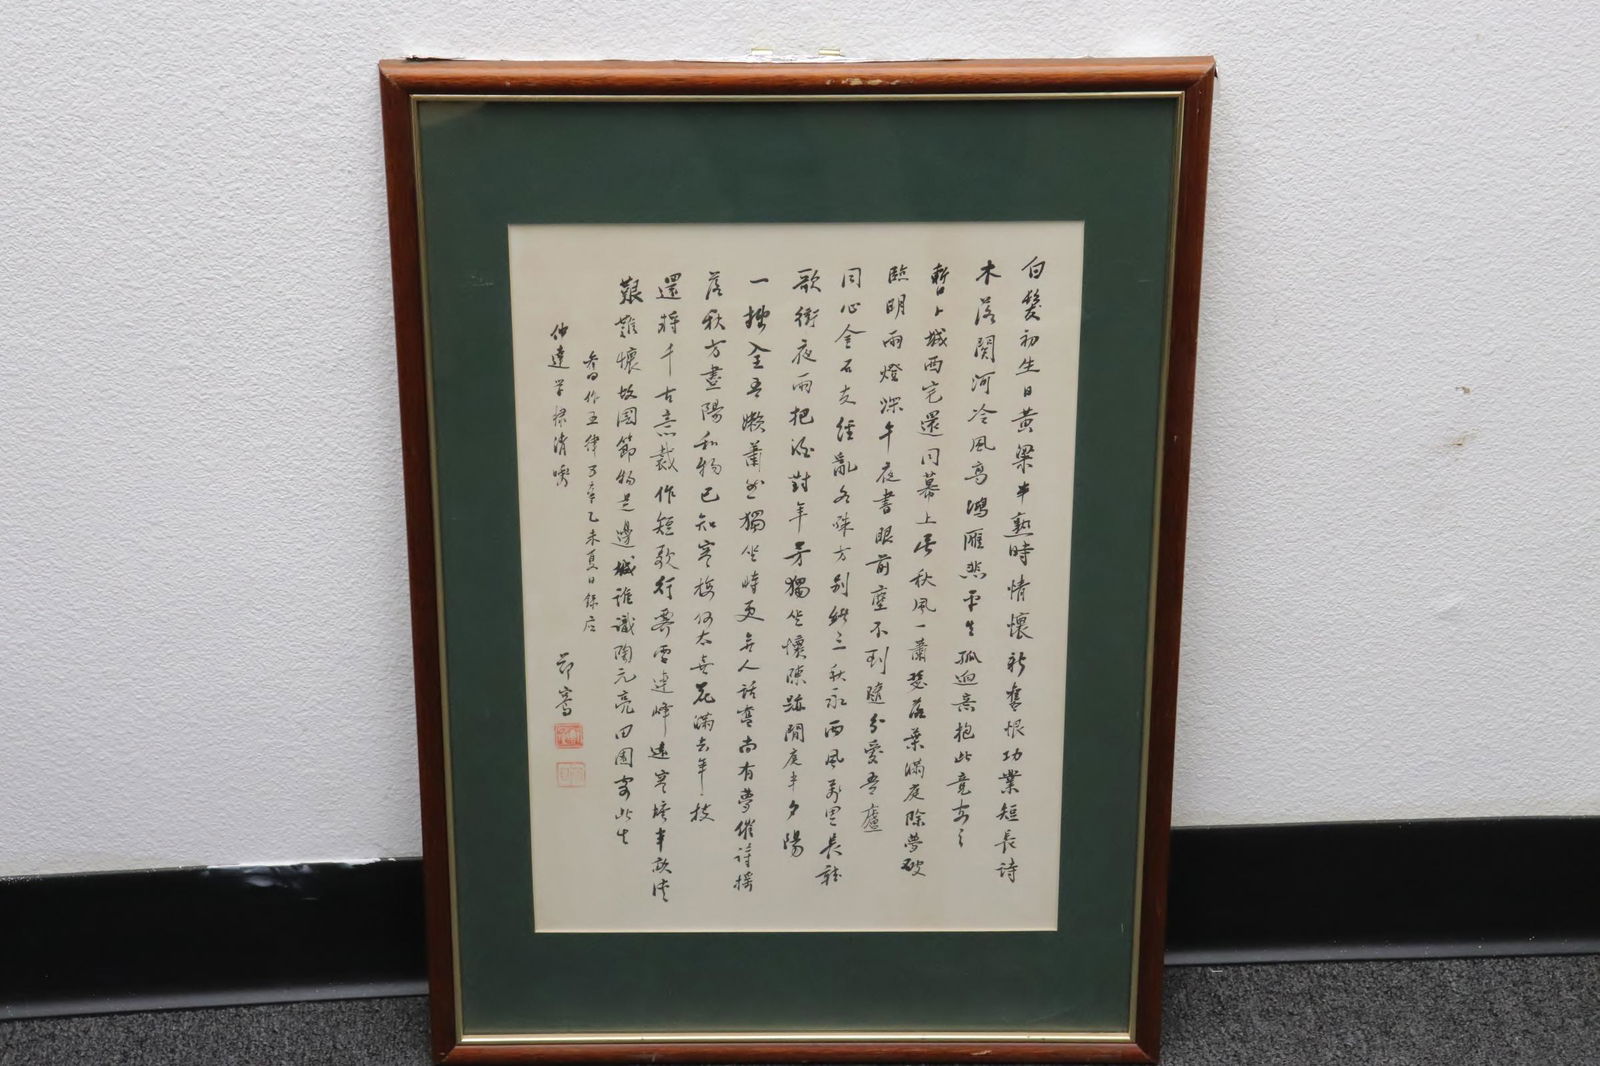 白髮初生日黃粱半熟時情懷新舊恨功業短長詩
木落關河冷風高鴻雁悲平生孤迥意抱此竟安之
暫卜城西宅還同幕上居秋風一蕭瑟落葉滿庭除夢破
臨明雨燈深午夜書眼前塵不到隨分愛吾廬
同心金石交經亂各殊方別緒三秋永西風萬里長
歌衝夜雨把酒對年芳獨坐懷陳跡閒庭半夕陽
一 全吾懶蕭然獨坐時更無人話舊尚有夢催詩搖
落秋方盡陽和物已知寒梅何太喜花滿去年枝
還將千古意裁作短歌行霽雪連峰遠寒 半畝
艱難懷故園節物是邊城誰識陶元亮田園寄此生
作五律 乙未夏日錄应
仲達学 清 鄭騫